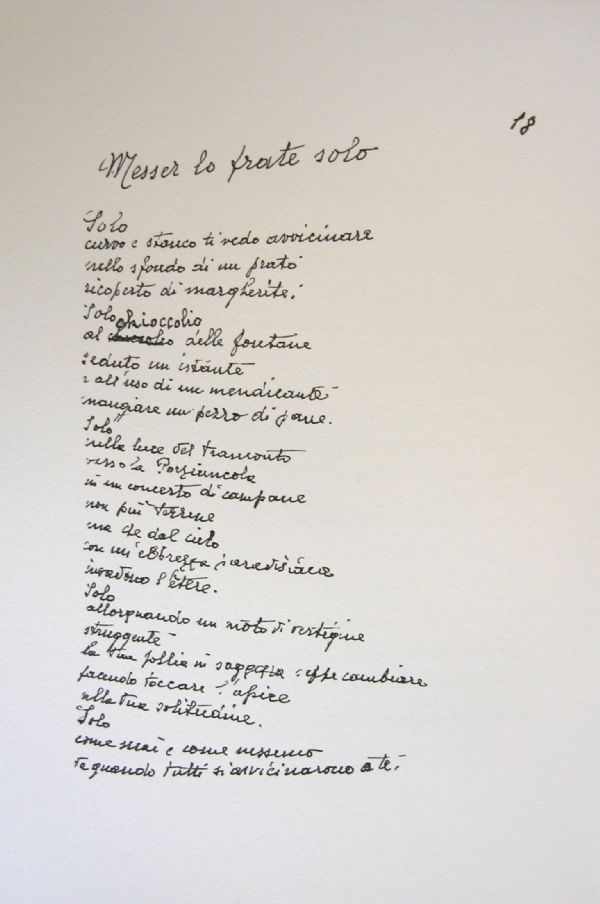 18
Messer lo frate solo
Solo
curvo e stanco ti vedo avvicinare
nello sfondo di un prato
ricoperto di margherite.
Solo
chioccolio
al delle fontane
seduto un istante
all'uso di un mendicante
mangiare un pezzo di pane.
Solo
nella luce del tramonto
verso la Porziuncola
in un concerto di campane
non più terrene
ma che dal cielo
con un'ebbrezza paradisiaca
invadono l'etere.
Solo
allorquando un moto di vertigine
struggente
la tua follia in saggezza seppe cambiare
facendo toccare l'apice
alla tua solitudine.
Solo
come mai e come nessuno
quando tutti si avvicinarono a te.